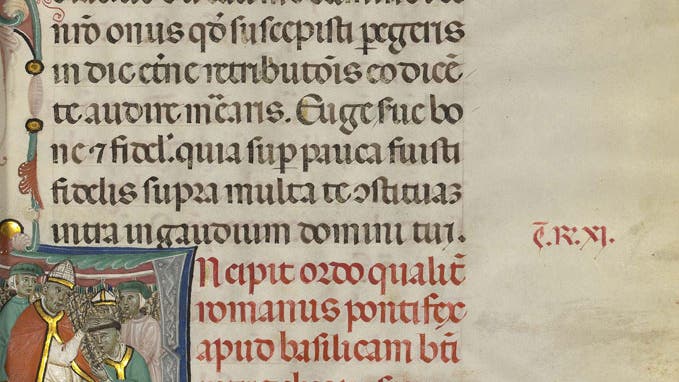 nr̄o onus qd̄ suscepisti pegeris
in die etn̄e retributōis eo dicēte
te audire m̄earis. Euge sue bo
ne ⁊ fidel'. quia sup pauca fuisti
fidelis supra multa te ꝯstituaꝫ
intra in gaudium domini tui.
c̄. R. XI.
Incipit ordo qualit̄
romanus pontifex
apud basilicam bt̄i